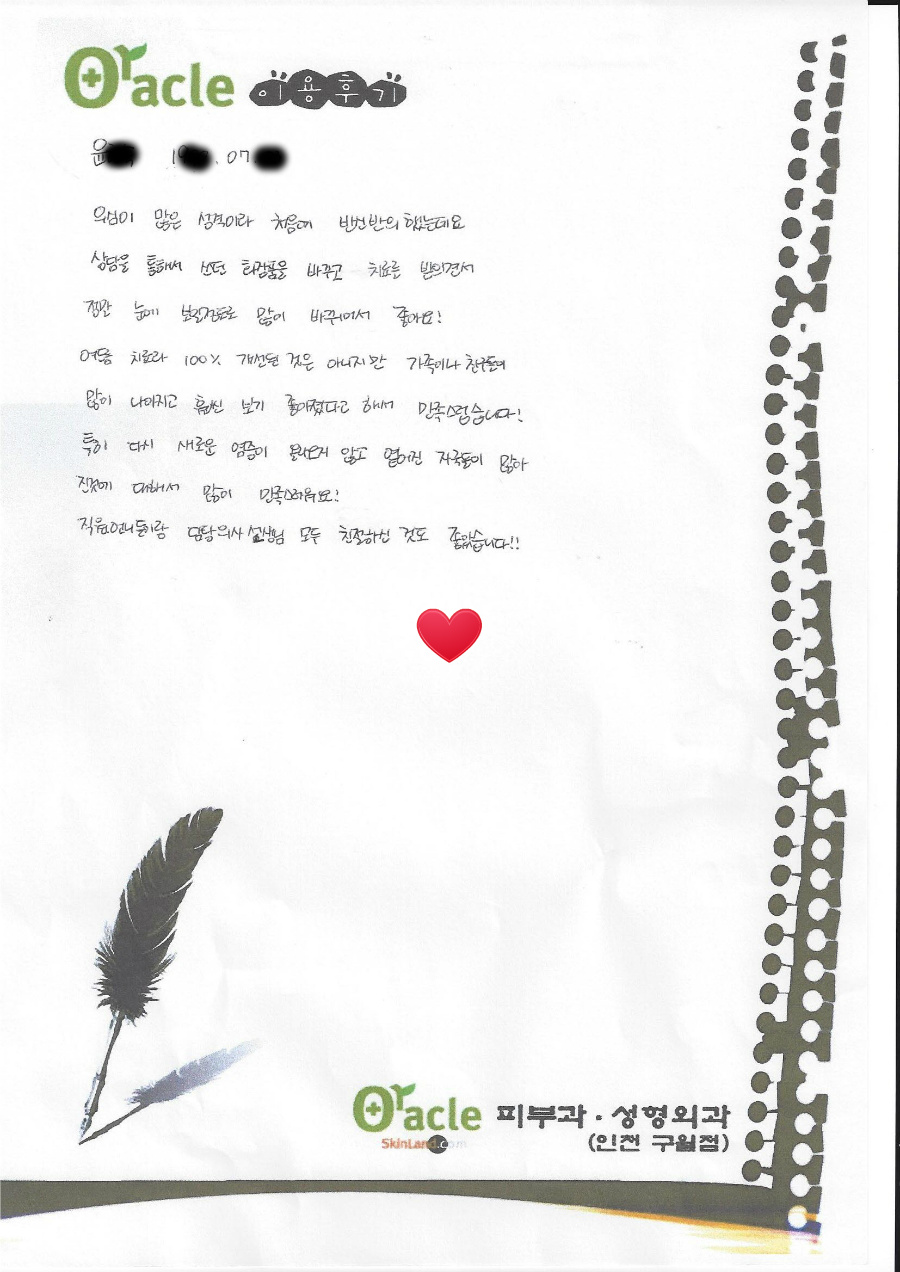 Oracle 이용후기
윤 1 . 07
의심이 많은 성격이라 처음에 반신반의 했는데요
상담을 통해서 쓰던 화장품을 바꾸고 치료를 받으면서
정말 눈에 보일정도로 많이 바뀌어서 좋아요!
여드름 치료라 100% 개선된 것은 아니지만 가족이나 친구들이
많이 나아지고 훨씬 보기 좋아졌다고 해서 만족스럽습니다!
특히 다시 새로운 염증이 올라오지 않고 옅어진 자국들이 많아
진것에 대해서 많이 만족스러워요!
직원언니들이랑 담당의사 선생님 모두 친절하신 것도 좋았습니다!!
Oracle 피부과·성형외과
SkinLand.com (인천 구월점)